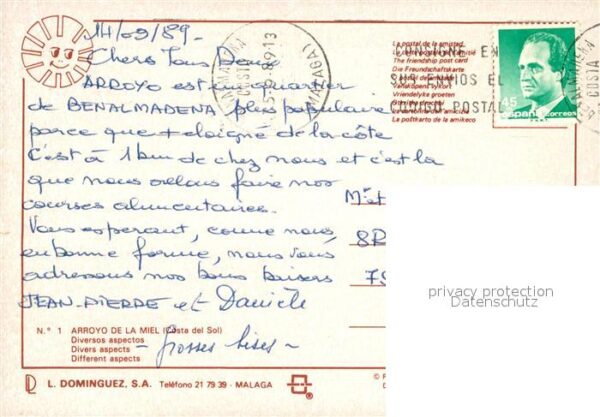 14/09/89.
Chers Tous Deux
ARROYO est un quartier
de BENALMADENA plus populaire
parce que + éloigné de la côte
C'est à 1 km de chez nous et c'est là
que nous allons faire nos
courses alimentaires.
Vous espérant, comme nous
en bonne forme, nous vous
adressons nos bons baisers
JEAN-PIERRE et Danièle
- Grosses bises -
M
8R
75
CONSIGNE EN
SUS ENVIOS EL
CODIGO POSTAL
(MALAGA)
La postal de la amistad
The friendship post card
Die Freundschaftskarte
Vriendelyke groeten
La poŝtkarto de la amikeco
45
españa correos
privacy protection
Datenschutz
N.° 1 ARROYO DE LA MIEL (Costa del Sol)
Diversos aspectos
Divers aspects
Different aspects
L. DOMINGUEZ, S.A. Teléfono 21 79 39 - MALAGA
©